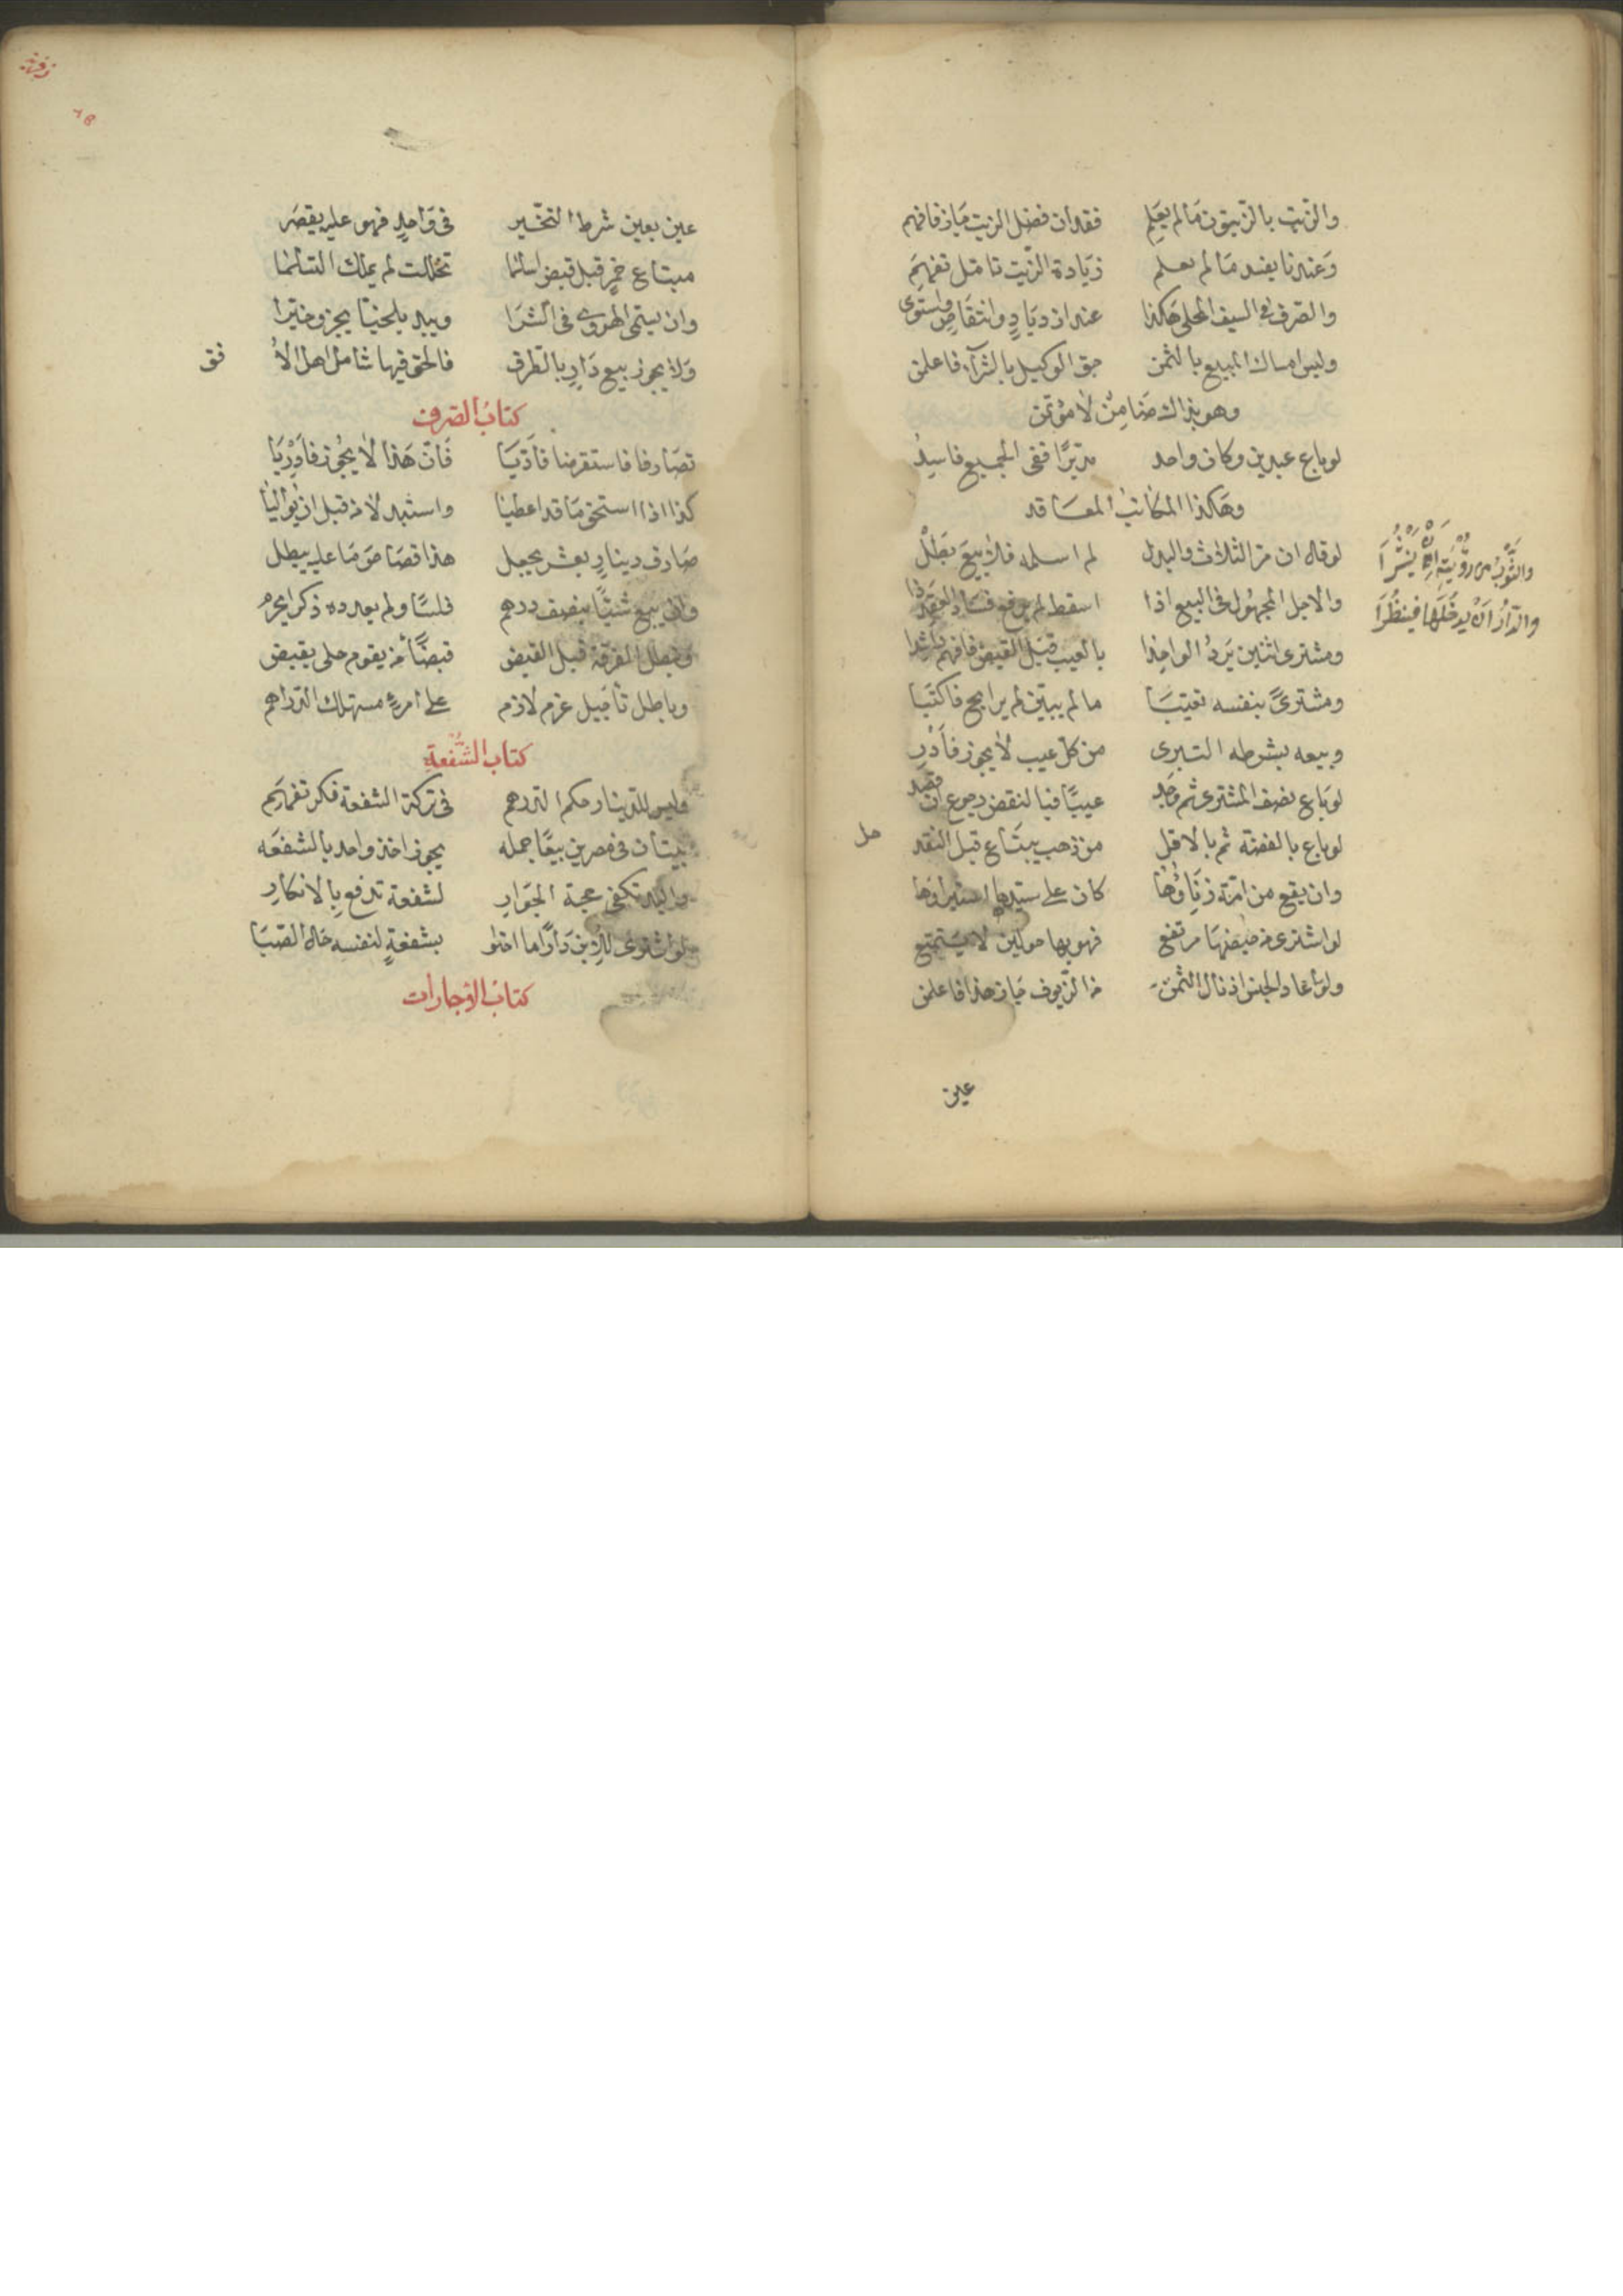 والزيت بالزيتون مالم يعلم فقدان فضل الزيت جاز فافهم
وعندنا يفسد مالم يعلم زيادة الزيت تامل تفهم
والصرف في السيف المحلى هكذا عند ازدياد وانتقاص واستوى
وليس امساك المبيع بالثمن حق الوكيل بالشراء فاعلمن
وهو بذاك ضامن لا مؤتمن
لو باع عبدين وكان واحد مدبرا ففي الجميع فاسد
وهكذا المكاتب المعاقد
لو قال ان مر الثلاث والبدل لم اسلمه فلا بيع بطل
والاجل المجهول في البيع اذا اسقط لم يرفع فساد العقد ذا
ومشترى اثنين يرد الواحدا بالعيب قبل القبض فافهم راشدا
ومشترى بنفسه تعيبا مالم يبين لم يرابح فاكتبا
وبيعه بشرطه التبرى من كل عيب لا يجوز فادر
لو باع نصف المشترى ثم وجد عيبا فبالنقص رجوع ان قصد
لو باع بالفضة ثم بالاقل من ذهب يبتاع قبل النقد حل
وان يقع من امة زناؤها كان على سيدها استبراؤها
لو اشترى من حيضها مرتفع فهو بها حولين لا يستمتع
ولو اعاد الجنس اذ نال الثمن من الزيوف جاز هذا فاعلمن
والثوب من رؤيته ان ينشرا
والدار ان يدخلها فينظرا
عين
عين بعين شرط التخير في واحد فهو عليه يقصر
مبتاع خمر قبل قبض اسلما تخللت لم يملك التسلما
وان يسمى الهروى في الشرا ويبد بلخيا يجز وخيرا
ولا يجوز بيع دار بالطرق فالحق فيها شامل اهل الافق
كتاب الصرف
تصارفا فاستقرضا فاديا فان هذا لا يجوز فادريا
كذا اذا استحق ما قد اعطيا واستبدلا من قبل ان يواليا
صارف دينار بعشر يجعل هذا قصاص ما عليه يبطل
وان يبع شيئا بنصف درهم فلسا ولم يعدده ذكرا يحرم
وتبطل الفرقة قبل القبض قبضا من يقوم حلى يقبض
وباطل تاجيل غرم لازم على امرء مستهلك الدراهم
كتاب الشفعة
وليس للدينار حكم الدرهم في تركة الشفعة فكر تفهم
بيتان في مصرين بيعا جمله يجوز اخذ واحد بالشفعه
واليد تكفى حجة الجوار لشفعة تدفع بالانكار
لو اشترى للابن دارا ما اختلو بشفعة لنفسه حال الصبا
كتاب الاجارات